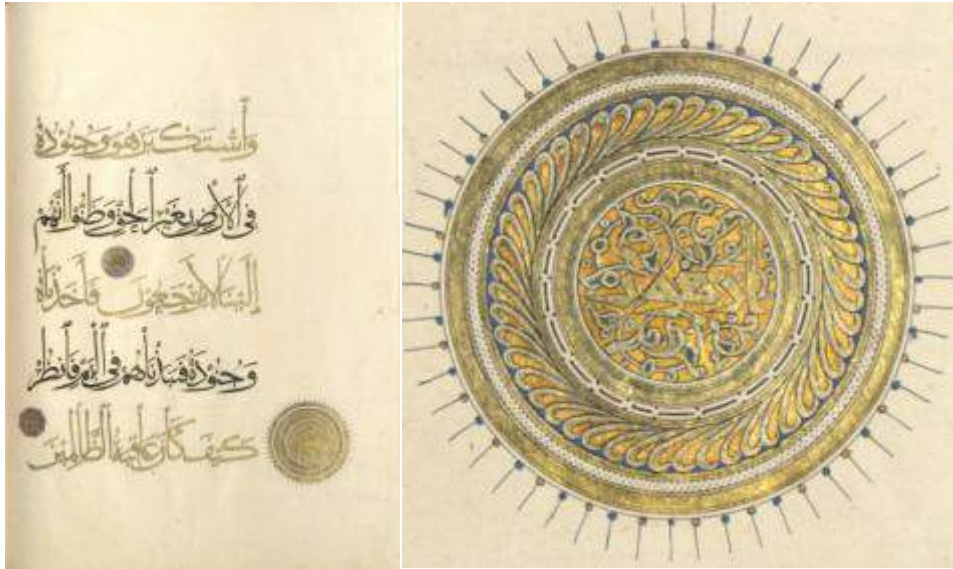 وَٱسْتَكْبَرَ هُوَ وَجُنُودُهُ
فِى ٱلْأَرْضِ بِغَيْرِ ٱلْحَقِّ وَظَنُّوٓا۟ أَنَّهُمْ
إِلَيْنَا لَا يُرْجَعُونَ فَأَخَذْنَٰهُ
وَجُنُودَهُ فَنَبَذْنَٰهُمْ فِى ٱلْيَمِّ فَٱنظُرْ
كَيْفَ كَانَ عَٰقِبَةُ ٱلظَّٰلِمِينَ